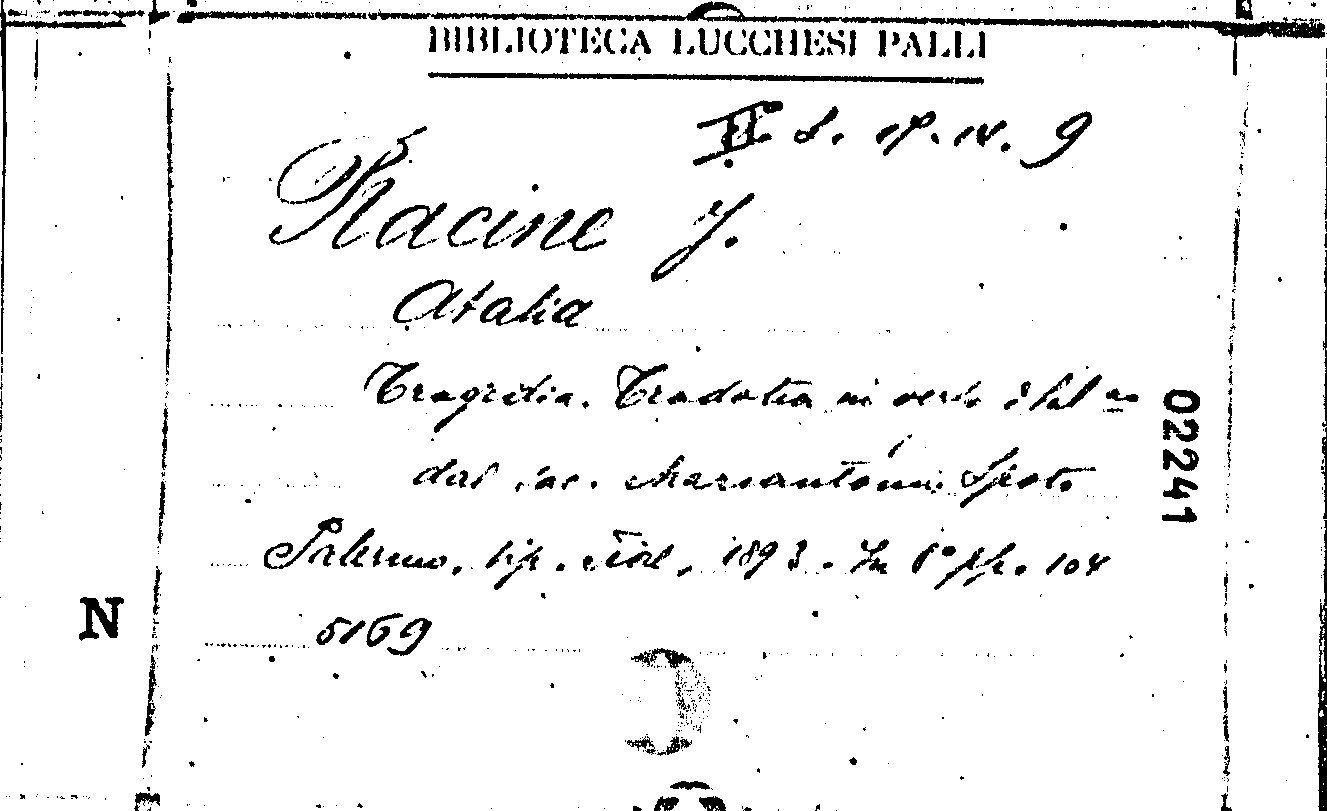 BIBLIOTECA LUCCHESI PALLI
9
Racine J.
Atalia
Tragedia. Tradotta in versi ital ni
dal sac. Marcantonio Spoto
Palermo, tip. 1893. In 8° pp. 104
5169
02241
N